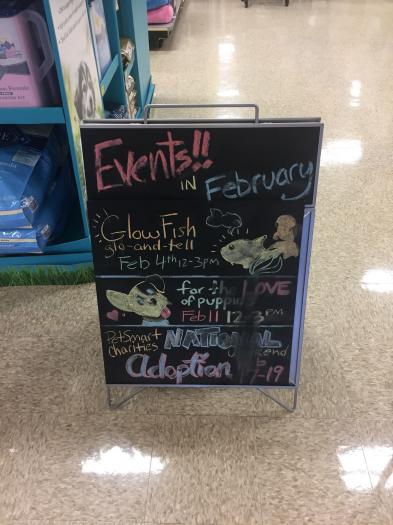 Events!!
IN February
GlowFish
glo-and-tell
Feb 4th 12-3pm
for the LOVE
of puppies
Feb 11 12-3PM
PetSmart NATIONAL
charities
Adoption
-19